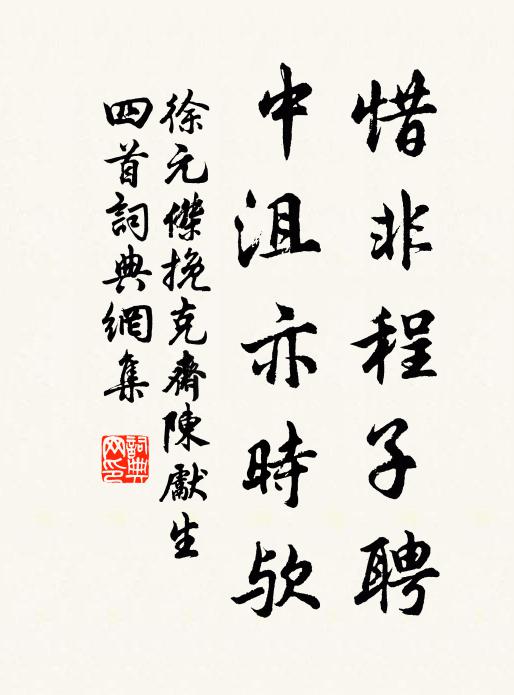 惜非程子聘
中沮亦時欤
徐元傑挽克齋陳獻生
四首詞典網集
詞典网印